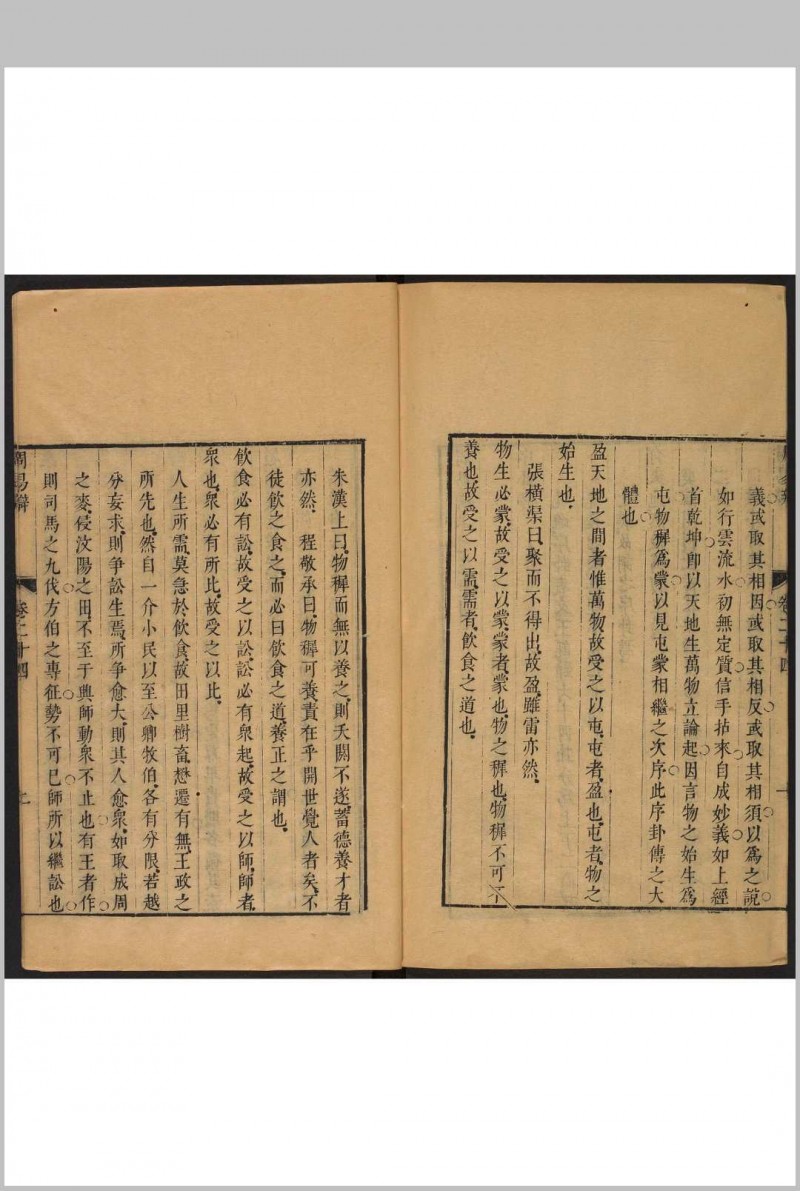 義或取其相因或取其相反或取其相須以爲之說
如行雲流水初無定質信手拈來自成妙義如上經
首乾坤卽以天地生萬物立論起因言物之始生爲
屯物穉爲蒙以見屯蒙相繼之次序此序卦傳之大
體也
盈天地之間者惟萬物故受之以屯屯者盈也屯者物之
始生也
張橫渠曰聚而不得出故盈雖雷亦然
物生必蒙故受之以蒙蒙者蒙也物之穉也物穉不可不
養也故受之以需需者飲食之道也
卷二十四
朱漢上曰物穉而無以養之則夭閼不遂蓄德養才者
亦然 程敬承曰物穉可養責在乎開世覺人者矣不
徒飲之食之而必曰飲食之道養正之謂也
飲食必有訟故受之以訟訟必有衆起故受之以師師者
衆也衆必有所比故受之以比
人生所需莫急於飲食故田里樹畜懋遷有無王政之
所先也然自一介小民以至公卿牧伯各有分限若越
分妄求則爭訟生焉所爭愈大則其人愈衆如取成周
之麥侵汶陽之田不至于興師動衆不止也有王者作
則司馬之九伐方伯之專征勢不可已師所以繼訟也
周易辯 卷二十四